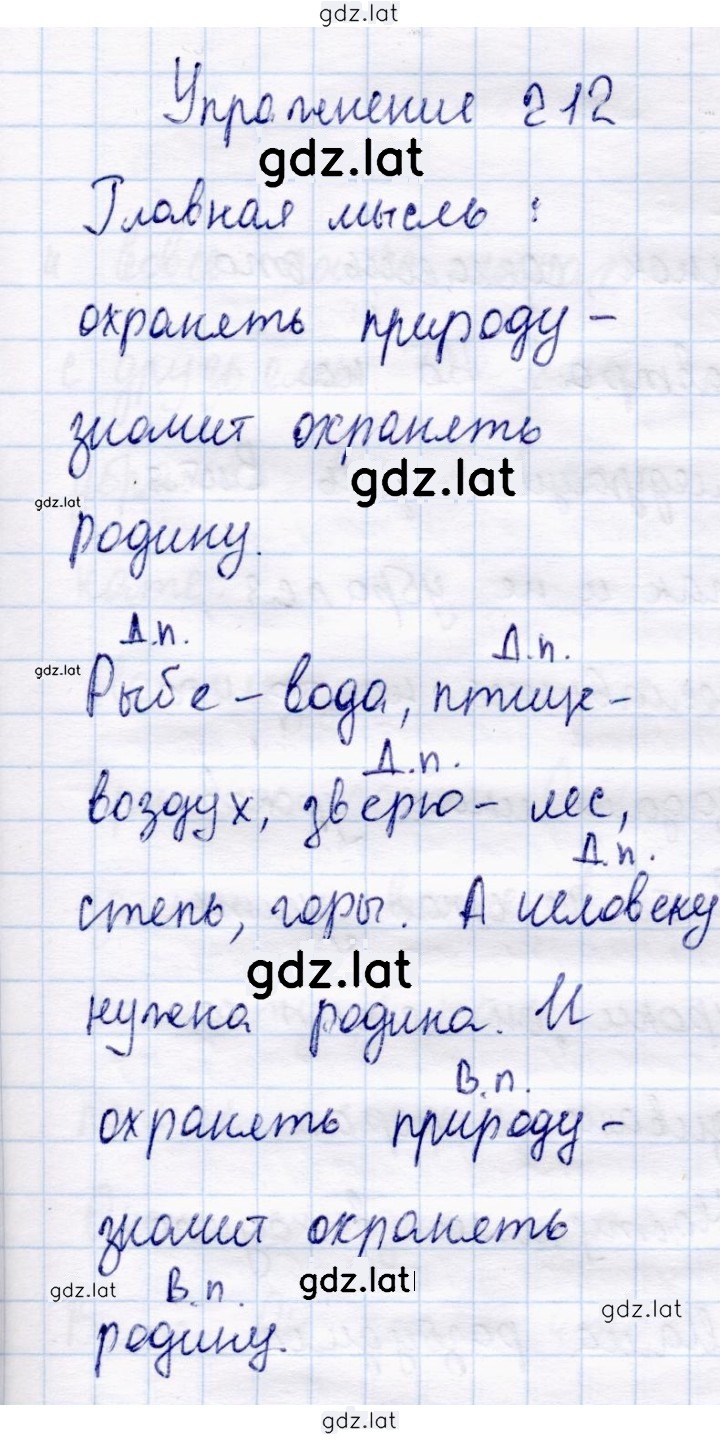 gdz.lat
Упражнение 212
gdz.lat
Главная мысль :
охранять природу –
значит охранять
gdz.lat
gdz.lat
родину.
Д.п. Д.п.
gdz.lat
Рыбе – вода, птице –
Д.п.
воздух, зверю – лес,
Д.п.
степь, горы. А человеку
gdz.lat
нужна родина. И
В.п.
охранять природу –
значит охранять
gdz.lat В.п. gdz.lat
gdz.lat
родину.
gdz.lat